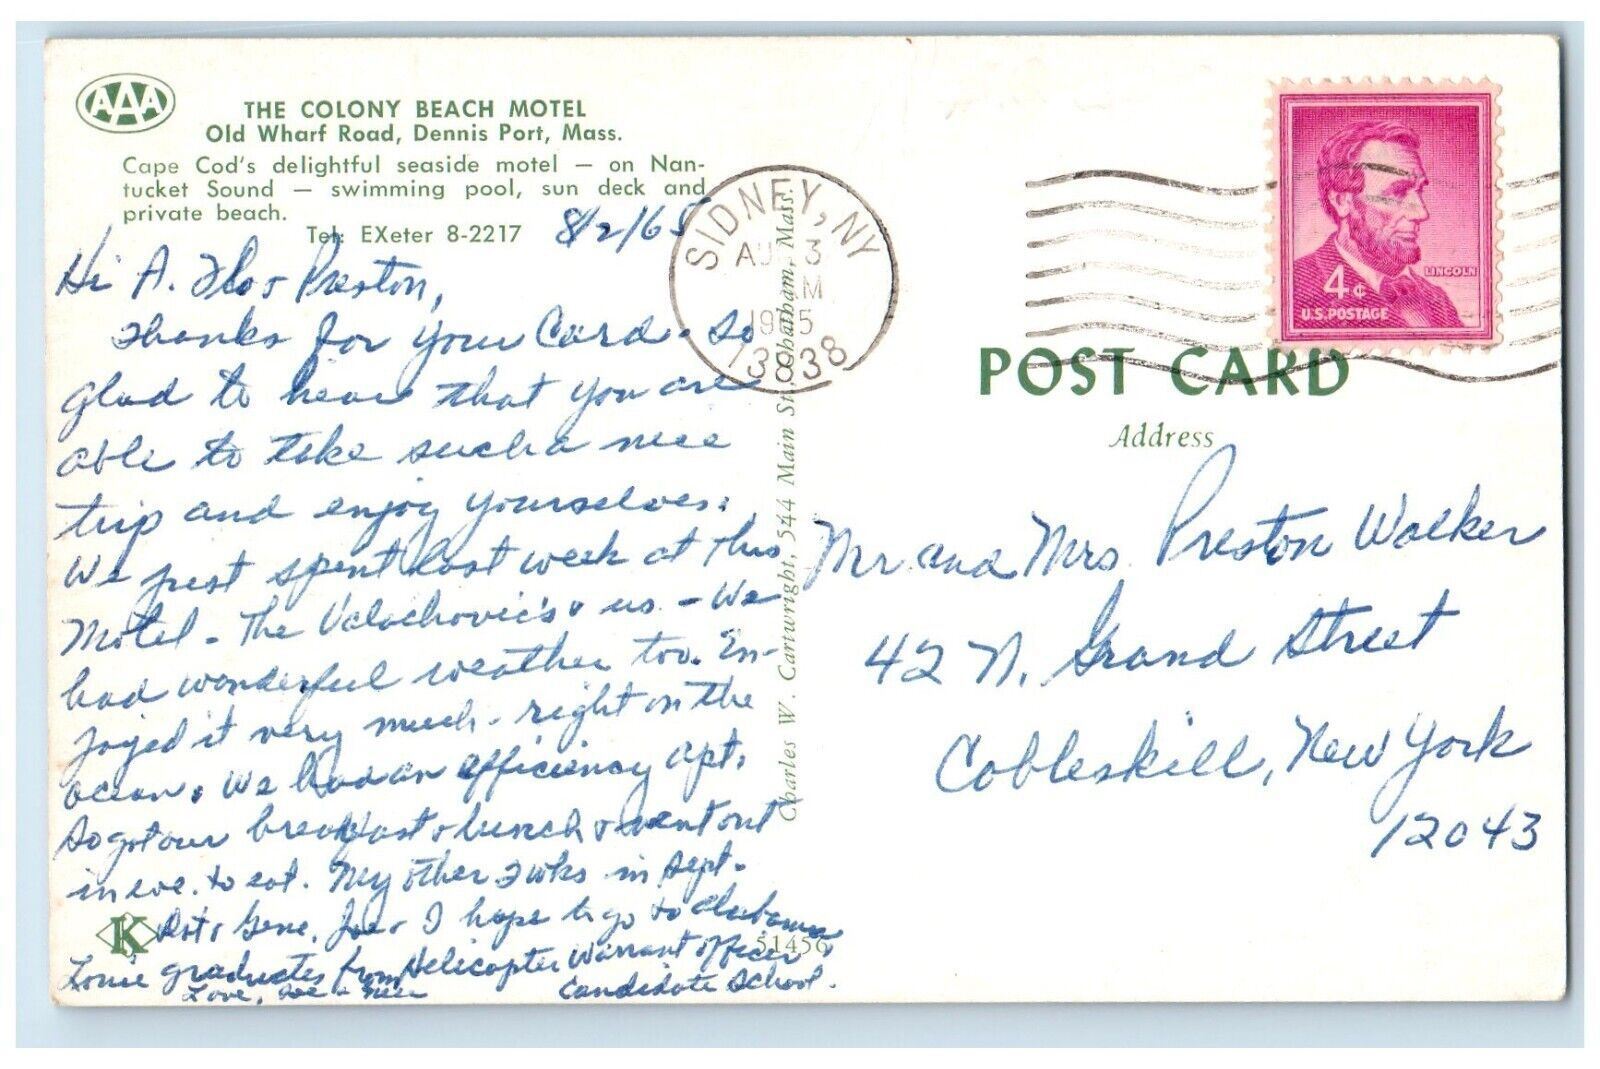 AAA
THE COLONY BEACH MOTEL
Old Wharf Road, Dennis Port, Mass.
Cape Cod's delightful seaside motel — on Nan-
tucket Sound — swimming pool, sun deck and
private beach.
Tel: EXeter 8-2217
8/2/65
Hi A. Flo & Preston,
Thanks for your Card - So
glad to hear that you are
able to take such a nice
trip and enjoy yourselves.
We just spent last week at this
Motel - The Valachovic's & us - We
had wonderful weather too. En-
joyed it very much - right on the
ocean. We had an efficiency apt.
So got our breakfast & lunch & went out
in eve. to eat. My other 2 wks in Sept.
Dot & Gene, Joe & I hope to go to Alabama
Louie graduates from Helicopter Warrant Officer
Love, Joe &
Candidate School.
K
51456
Charles W. Cartwright, 544 Main St., Chatham, Mass.
SIDNEY, NY
AUG 3
M
1965
13838
LINCOLN
4¢
U.S. POSTAGE
POST CARD
Address
Mr. and Mrs. Preston Walker
42 N. Grand Street
Cobleskill, New York
12043